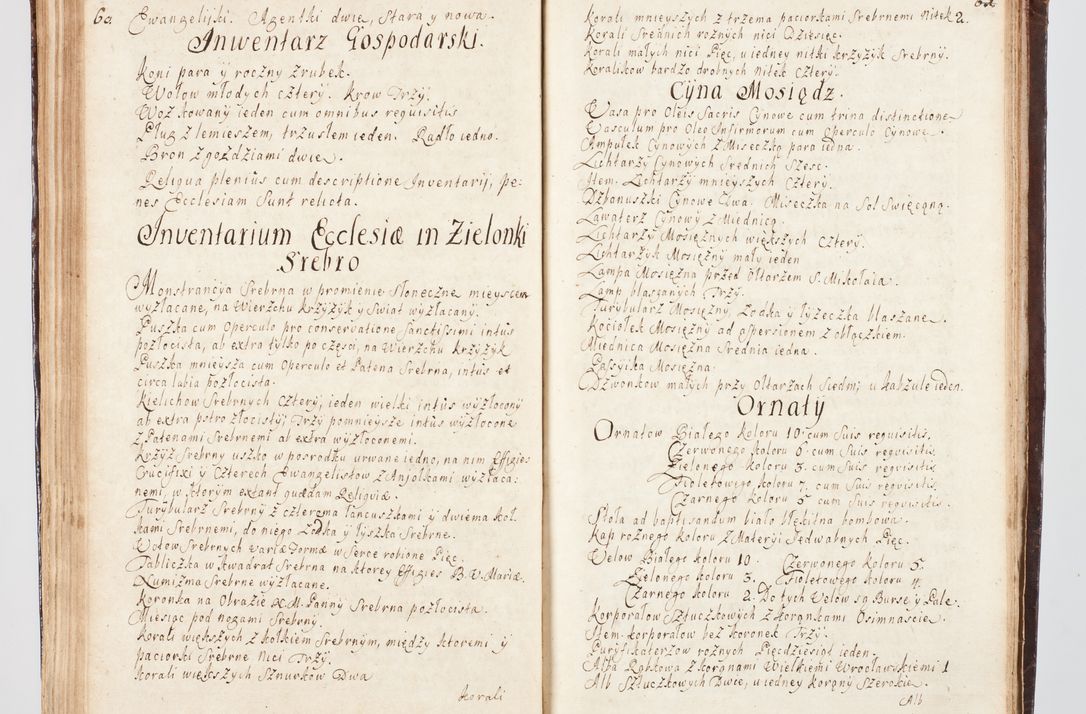 60
Ewangeliÿki. Agentki dwie, Stara y nowa.
Inwentarz Gospodarski.
Koni para ÿ roczny Zrubek.
Wołow młodych czterÿ. Krow Trzÿ.
Woz kowanÿ ieden cum omnibus requisitis
Pług z lemieszem, trzusłem ieden. Radło iedno.
Bron z gozdziami dwie.
Reliqua plenius cum descriptione Inventarij, pe-
nes Ecclesiam Sunt relicta.
Inventarium Ecclesiæ in Zielonki
Srebro
Monstrancÿa Srebrna w promienie Słoneczne mieyscem
wyzłacane, na Wierzchu krzÿzÿk y Swiat wyzłacanÿ.
Puszka cum Operculo pro conservatione Sanctissimi intus
pozłocista, ab extra tylko po częsci, na Wierzchu krzÿzÿk
Puszka mnieysza cum Operculo et Patena Srebrna, intus et
circa labia pozłocista.
Kielichow Srebrnych Czterÿ, ieden wielki intus wyzłoconÿ
ab extra pstro złocistÿ; Trzÿ pomnieysze intus wÿzłocone
z Patenami Srebrnemi ab extra wÿzłoconemi.
Krzÿz Srebrny uszko w posrodku urwane iedno, na nim Effigies
Crucifixi ÿ Czterech Ewangelistow z Anjołkami wyzłaca:
nemi, w ktorym extant quædam Reliquiæ.
Turybularz Srebrnÿ z czterema łancuszkami ÿ dwiema koł.
kami Srebrnemi, do niego Łodka ÿ łyszka Srebrne.
Wotow Srebrnych variæ Formæ w Serce robione Pięc.
Tabliczka w kwadrat Srebrna na ktorey Effigies B. V. Mariæ.
Numizma Srebrne wÿzłacane.
Koronka na Obrazie N. M. Pannÿ Srebrna pozłocista.
Miesiąc pod nogami Srebrnÿ.
Korali większych z kołkiem Srebrnÿm, między ktoremi ÿ
paciorki Srebrne Nici Trzÿ.
Korali większych Sznurkow Dwa
Korali
Korali mnieyszych z trzema paciorkami Srebrnemi Nitek 2.
Korali Srednich roznÿch nici Dziesięc.
Korali małych nici Pięc, u iedney nitki krzyzÿk Srebrnÿ.
Koralikow bardzo drobnych nitek czterÿ.
Cÿna Mosiądz.
Vasa pro Oleis Sacris Cÿnowe cum trina distinctione
Vasculum pro Oleo Infirmorum cum Operculo Cynowe.
Ampułek Cynowÿch z Miseczką para iedna.
Lichtarzÿ Cÿnowych Srednich Szesc.
Item Lichtarzÿ mnieyszych Czterÿ.
Dzbanuszki Cÿnowe Dwa. Miseczka na Sol Swięconą.
Lawaterz Cÿnowÿ z Miednicą.
Lichtarzÿ Mosięznych większych Czterÿ.
Lichtarzÿk Mosięznÿ małÿ ieden
Lampa Mosięzna przed Ołtarzem S. Mikołaia.
Lamp blaszanych Trzÿ.
Turybularz Mosięzny, Łodka ÿ łyzeczka blaszane.
Kociołek Mosięznÿ ad aspersionem z obłączkiem.
Miednica Mosięzna Srednia iedna.
Passÿika Mosięzna.
Dzwonkow małych przy Ołtarzach Siedm; u kapzule ieden.
Ornatÿ
Ornatow Białego koloru 10. cum Suis requisitis.
Czerwonego koloru 6. cum Suis requisitis.
Zielonego koloru 3. cum Suis requisitis.
Fioletowego koloru 7. cum Suis requisitis.
Czarnego koloru 5. cum Suis requisitis.
Stoła ad baptisandum biało błękitna bombowa.
Kap roznego koloru z Materÿi Jedwabnych Pięc.
Welow Białego koloru 10. Czerwonego koloru 5.
Zielonego koloru 3. Fioletowego koloru 4.
Czarnego koloru 2. Do tych Welow są Bursę ÿ Pale.
Korporałow Sztuczkowych z korąnkami Osimnascie.
Item korporałow bez koronek Trzÿ.
Puryfikaterzow roznych Pięcdziesiąt ieden.
Alba Rąbkowa z korąnami Wielkiemi Wrocławskiemi 1
Alb Sztuczkowych Dwie, u iedney korąny Szerokie.
Alb